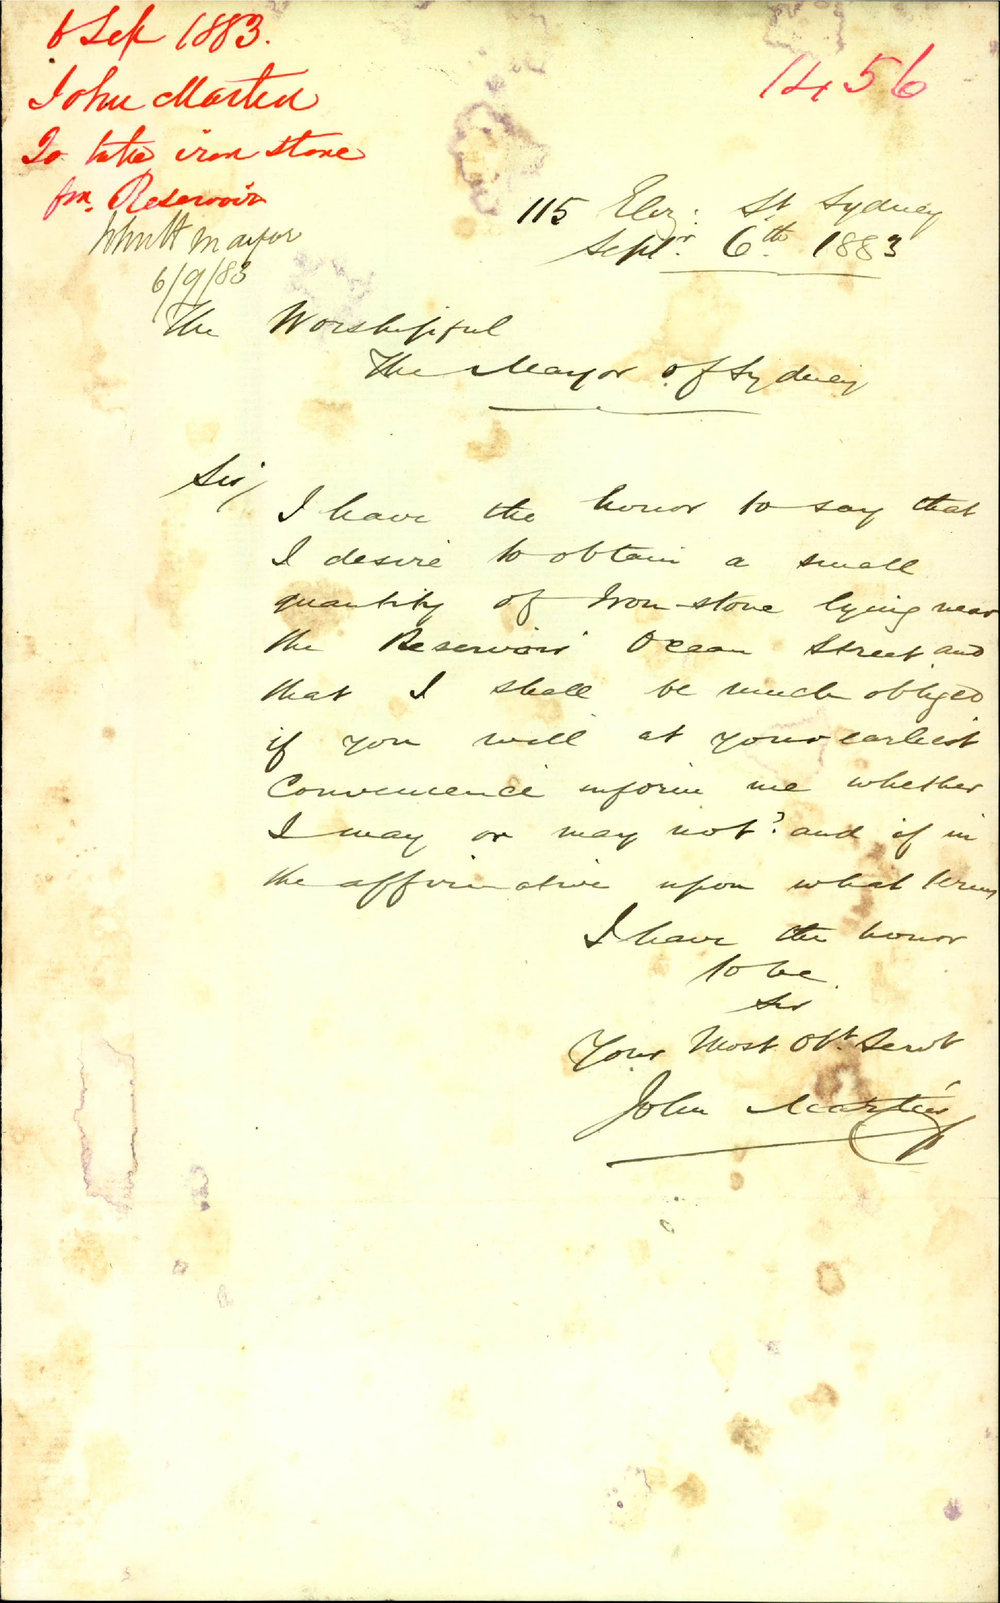 6 Sep 1883.
John Martin
To take iron stone
fm. Reservoir
Mayor
6/9/83
1456
115 Eliz: St Sydney
Septr. 6th. 1883
The Worshipful
The Mayor of Sydney
Sir,
I have the honor to say that
I desire to obtain a small
quantity of Iron-stone lying near
the Reservoir Ocean Street and
that I shall be much obliged
if you will at your earliest
Convenience inform me whether
I may or may not? and if in
the affirmative upon what terms
I have the honor
to be
Sir
Your Most Obt. Servt
John Martin